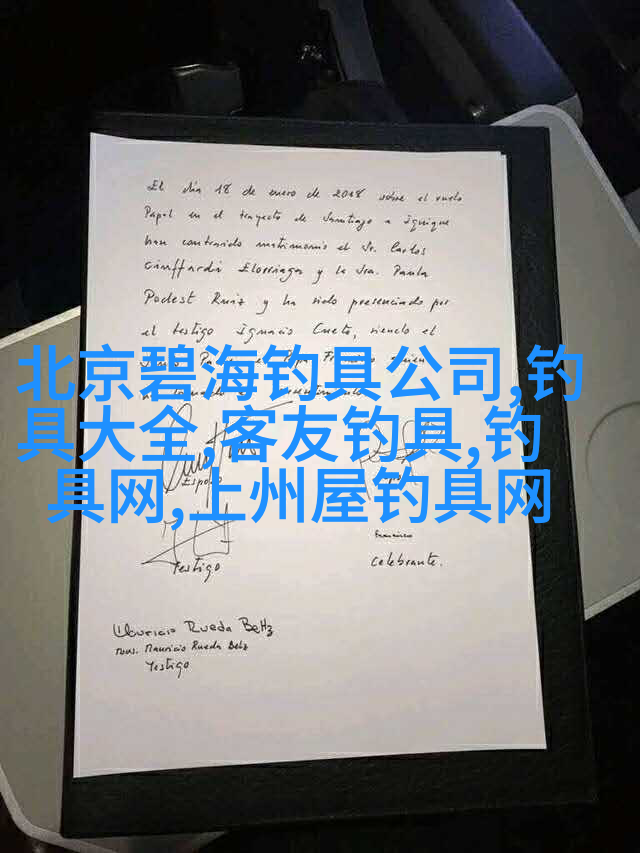 El día 18 de enero de 2018 sobre el vuelo
Papal en el trayecto de Santiago a Iquique
han contraido matrimonio el Sr. Carlos
Ciuffardi Elorriaga y la Sra. Paula
Podest Ruiz y ha sido presenciado por
el testigo Ignacio Cueto, siendo el
Francisco quien
consentimiento
北京碧海钓具公司,钓
具大全,客友钓具,钓
具网,上州屋钓具网
Esposo
Franciscus
Testigo
Celebrante.
Mauricio Rueda Beltz
Mons. Mauricio Rueda Beltz
Testigo